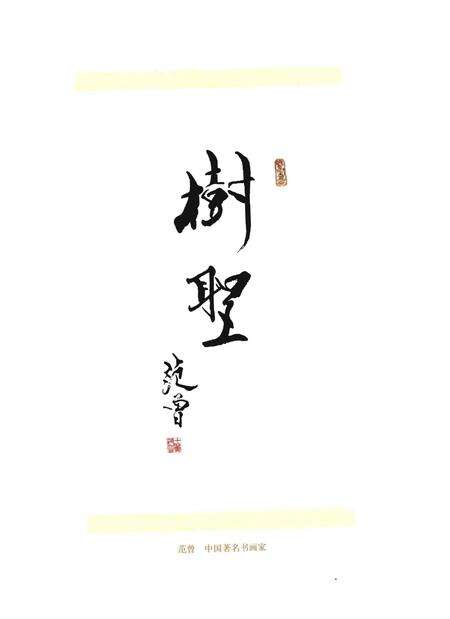 樹聖
范曾
范曾 中国著名书画家